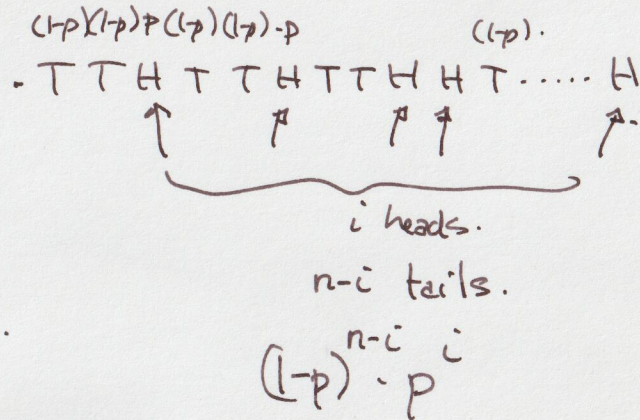 (1-p)(1-p)p(1-p)(1-p)·p (1-p).
. T T H T T H T T H H T ..... H
i heads.
n-i tails.
(1-p)^{n-i} · p^i